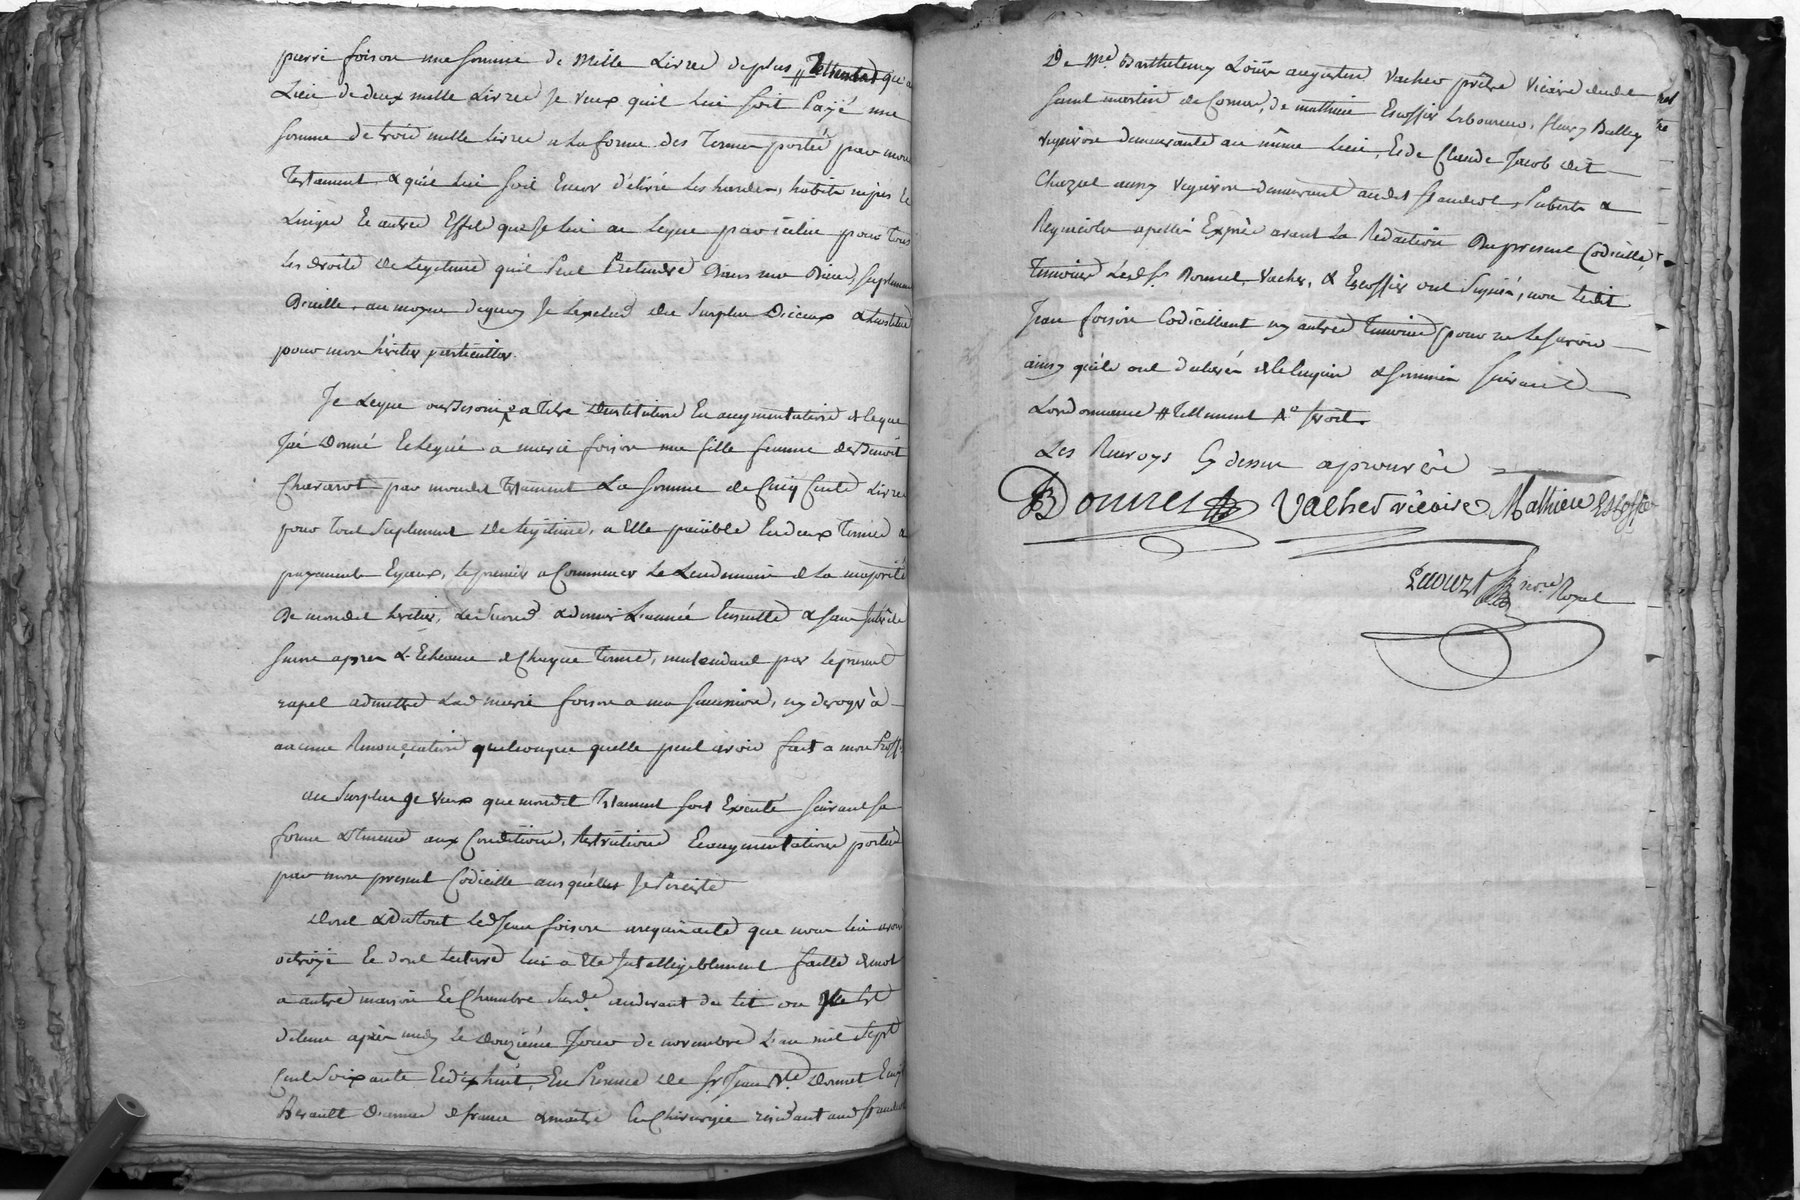 pierre foison une somme de Mille Livres de plus, # qu'au
Lieu de deux mille Livres Je veux qu'il Lui soit Payé une
somme de trois mille livres a la forme des Termes portés par mon
Testament & qu'il lui soit Encor délivré les hardes, habits nipes &
Linges Et autres Effets que Je lui ai Legué par icelui pour Tous
les droits de Legitime qu'il Peut Pretendre Dans mes Biens, suplement
D'icelle, au moyen de quoy Je L'exclud du Surplus D'iceux & L'institue
pour mon héritier particulier.
Je Legue a Titre D'institution En augmentation de legue
J'ai Donné Et Legué a marie foison ma fille femme de Benoit
Chavarot par mondit Testament La somme de Cinq Cents Livres
pour Tout Suplement de legitime, a Elle païable En deux Termes &
payements Egaux, le premier a Commencer Le Lendemain de La majorité
De mondit heritier, Le Second L'année Ensuitte & sans Intérêts
sinon apres L'Echeance de Chaque Terme, n'entendant par le present
rapel admettre Lad marie foison a ma succession, ny deroger à
aucune Renonciation quelconque quelle peut avoir fait a mon Proffit
au Surplus Je veux que mondit Testament soit Executé suivant sa
forme & Teneur aux Conditions, Restrictions Et augmentations portées
par mon present Codicille auxquelles Je Persiste
Dont & Du tout Led Jean foison a requis acte que nous lui avons
octroyé Et dont lecture lui a Eté Intelligiblement faitte de mot
a autre maison Et Chambre Susd. audevant du lit ou Il Est
detenu après midy Le Douzième Jour de novembre L'an mil Sept
Cent Soixante Et dix huit, En Presence De sr Jean Bte Donnet
Herault D'armes de france & maitre En Chirurgie residant aud
De Mre Barthelemy Loüis augustin Vacher prêtre Vicaire dudit
saint martin de Cornas, de mathieu Escoffier Laboureur, fleury Balley
vigneron demeurants au même Lieu, Et de Claude Jacob dit
Chazal aussy vigneron demeurant audit st andeol, Puberts &
Regnicoles apellés Exprès avant La Redaction Du present Codicille,
Temoins Lesd Srs Donnet, Vacher, & Escoffier ont Signés, non Ledit
Jean foison Codicillant ny autres Temoins pour ne le savoir
ainsy qu'ils ont déclarés de le Enquis & Sommés suivant
L'ordonnance # Tellement
Les Renvoys Cy dessus aprouvés
Donnet Vacher vicaire Mathieu Escoffier
Royal